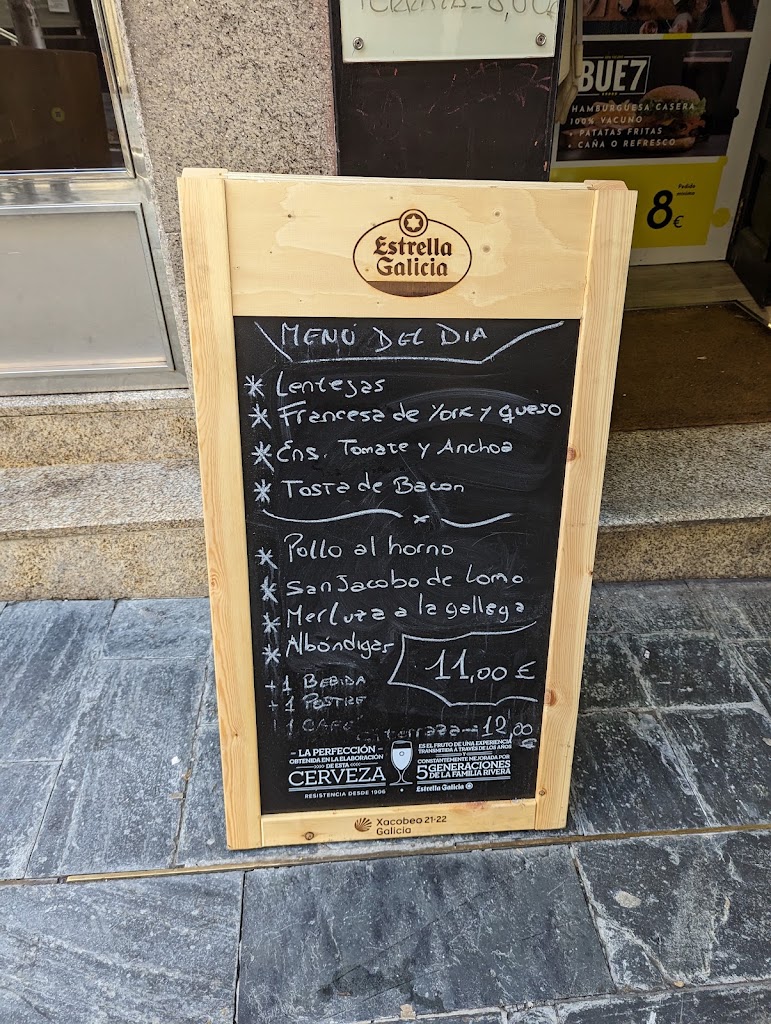 BUE7
HAMBURGUESA CASERA
100% VACUNO
• PATATAS FRITAS
• CAÑA O REFRESCO
Pedido
mínimo
8€
Estrella
Galicia
MENÚ DEL DIA
* Lentejas
* Francesa de York y queso
* Ens. Tomate y Anchoa
* Tosta de Bacon
x
* Pollo al horno
* San Jacobo de Lomo
* Merluza a la gallega
* Albóndigas
11,00 €
+ 1 BEBIDA
+ 1 POSTRE
1 CAFÉ
terraza - 12,00 €
- LA PERFECCIÓN -
OBTENIDA EN LA ELABORACIÓN
DE ESTA
CERVEZA
RESISTENCIA DESDE 1906
ES EL FRUTO DE UNA EXPERIENCIA
TRANSMITIDA A TRAVÉS DE LOS AÑOS
Y
CONSTANTEMENTE MEJORADA POR
5 GENERACIONES
DE LA FAMILIA RIVERA
Estrella Galicia
Xacobeo 21·22
Galicia